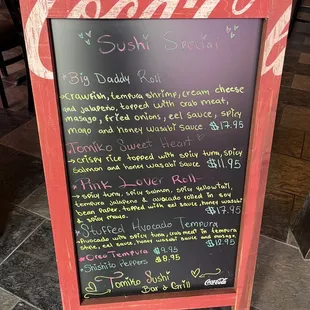 Coca-Cola
Sushi Special
Big Daddy Roll
Crawfish, tempura shrimp, cream cheese
and jalapeño, topped with crab meat,
masago, fried onions, eel sauce, spicy
mayo and honey wasabi sauce $17.95
Tomiko Sweet Heart
crispy rice topped with spicy tuna, spicy
salmon and honey wasabi sauce $11.95
Pink Lover Roll
spicy tuna, spicy salmon, spicy yellowtail,
tempura jalapeno & avocado rolled in soy
bean paper, topped with eel sauce, honey wasabi
& spicy mayo $17.95
Stuffed Avocado Tempura
Avocado with spicy tuna, crab meat in tempura
style, eel sauce, honey wasabi sauce and masago
$12.95
Oreo Tempura $9.95
Shishito Peppers $8.95
Tomiko Sushi
Bar & Grill
Coca-Cola